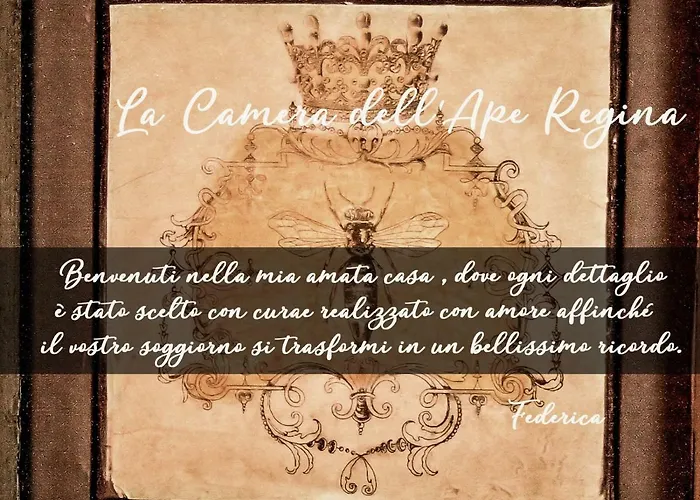 La Camera dell'Ape Regina
Benvenuti nella mia amata casa , dove ogni dettaglio
è stato scelto con curae realizzato con amore affinché
il vostro soggiorno si trasformi in un bellissimo ricordo.
Federica